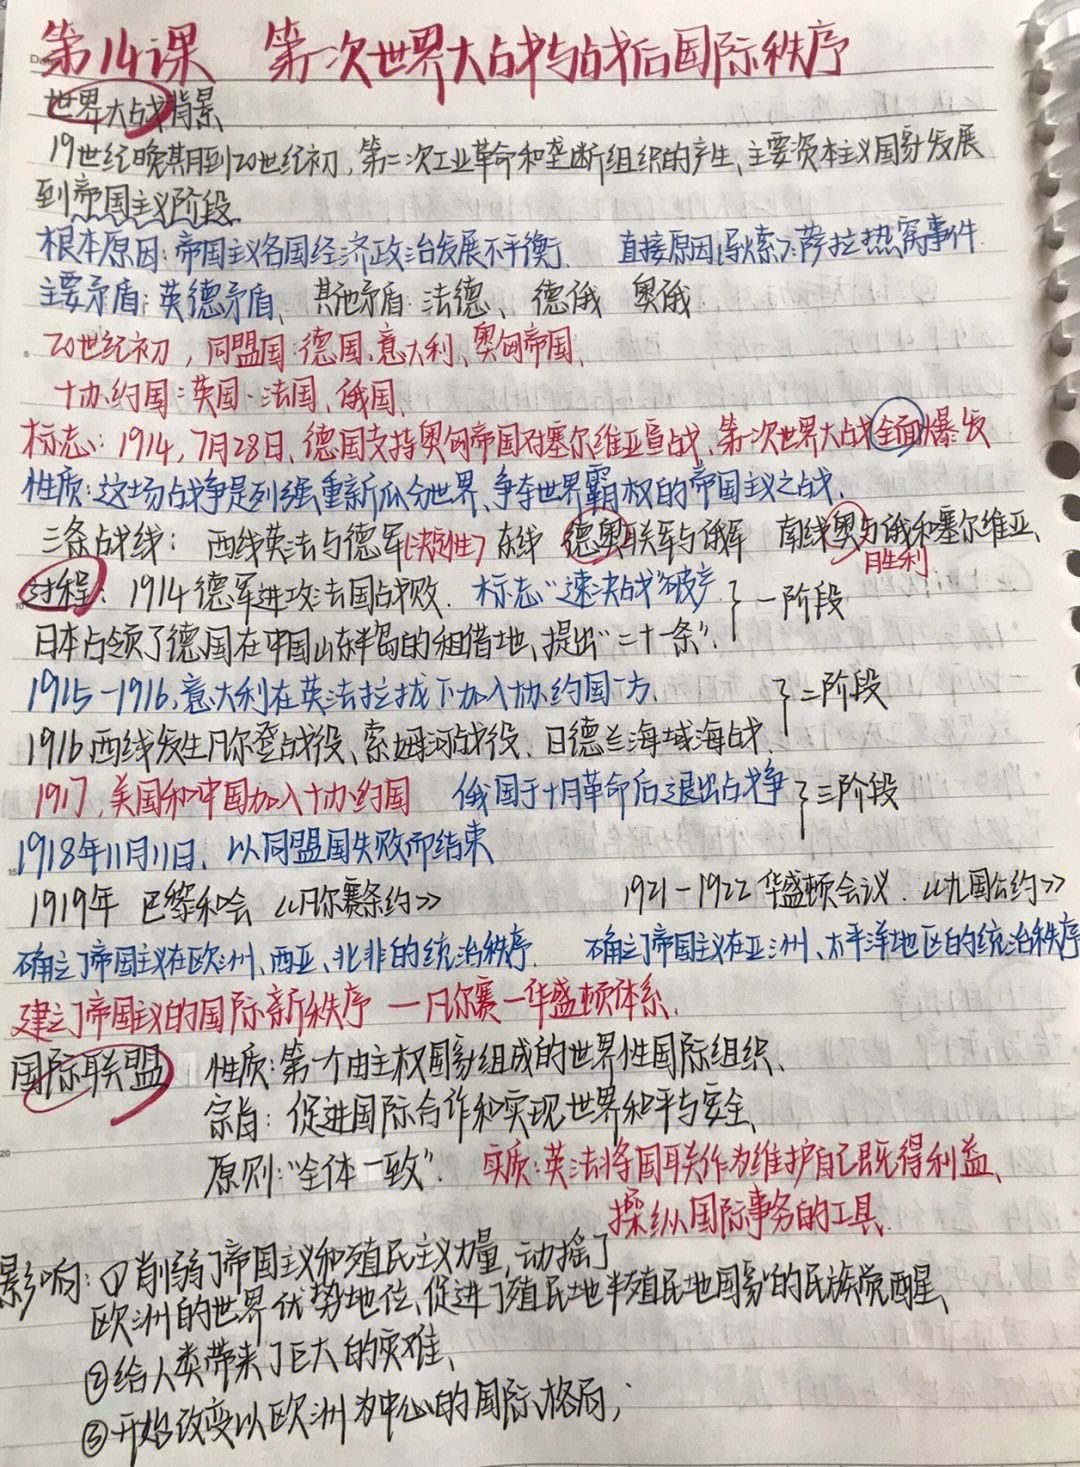 第14课 第一次世界大战与战后国际秩序
世界大战背景
19世纪晚期到20世纪初,第二次工业革命和垄断组织的产生、主要资本主义国家发展
到帝国主义阶段
根本原因:帝国主义各国经济政治发展不平衡、 直接原因(导火索):萨拉热窝事件
主要矛盾:英德矛盾、 其他矛盾:法德、德俄 奥俄
20世纪初,同盟国:德国、意大利、奥匈帝国、
协约国:英国、法国、俄国、
标志:1914,7月28日、德国支持奥匈帝国对塞尔维亚宣战、第一次世界大战全面爆发
性质:这场战争是列强重新瓜分世界、争夺世界霸权的帝国主义之战、
三条战线: 西线英法与德军(决定性) 东线 德奥联军与俄军 南线奥与俄和塞尔维亚、
胜利
过程:1914德军进攻法国战败. 标志"速决战"破产 一阶段
日本占领了德国在中国山东半岛的租借地、提出"二十一条".
1915-1916,意大利在英法拉拢下加入协约国一方. 二阶段
1916西线发生凡尔登战役、索姆河战役、日德兰海域海战、
1917,美国和中国加入协约国 俄国于十月革命后退出战争 三阶段
1918年11月11日、以同盟国失败而结束
1919年 巴黎和会 《凡尔赛条约》 1921-1922 华盛顿会议.《九国公约》
确立了帝国主义在欧洲、西亚、北非的统治秩序. 确立了帝国主义在亚洲、太平洋地区的统治秩序
建立了帝国主义的国际新秩序 — 凡尔赛—华盛顿体系、
国际联盟 性质:第一个由主权国家组成的世界性国际组织、
宗旨:促进国际合作和实现世界和平与安全、
原则:"全体一致". 实质:英法将国联作为维护自己既得利益、
操纵国际事务的工具、
影响:①削弱了帝国主义和殖民主义力量,动摇了
欧洲的世界优势地位、促进了殖民地半殖民地国家的民族觉醒、
②给人类带来了巨大的灾难、
③开始改变以欧洲为中心的国际格局;